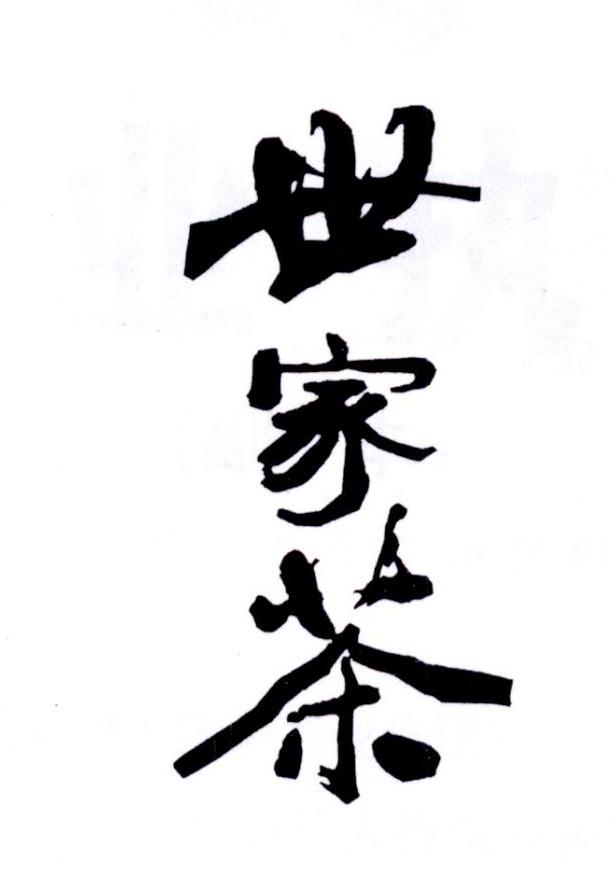 世家茶